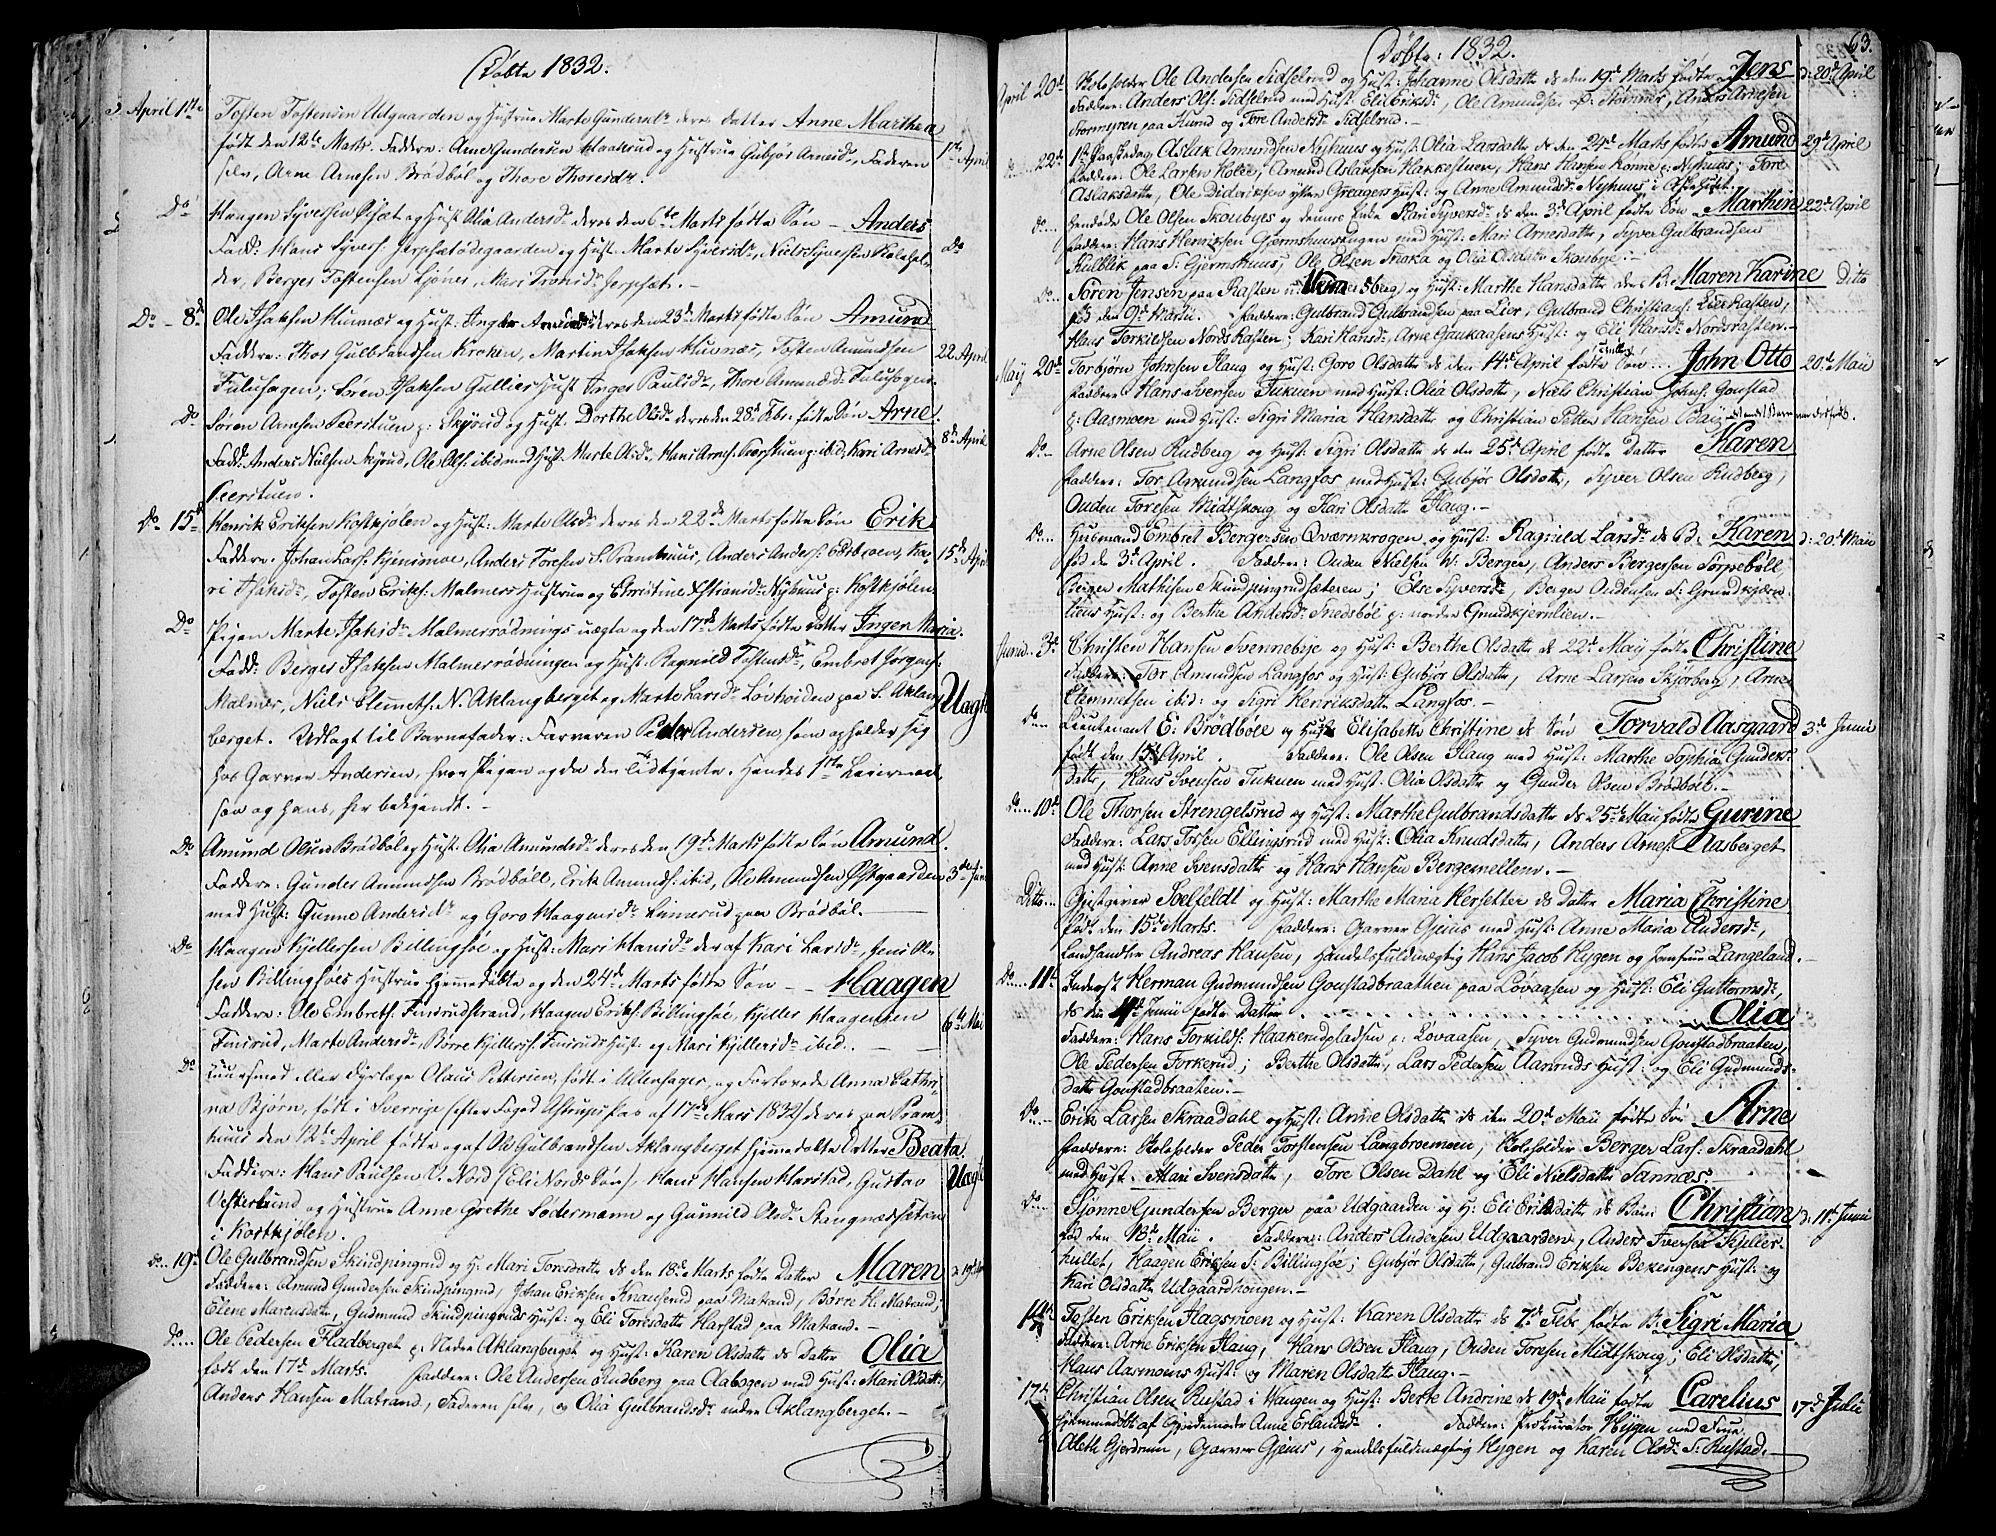 Døbte 1832.
April 1ste Tosten Tostensen Udgaarden og Hustrue Marte Gundersdr deres Datter Anne Marthea
født den 12te Marts. Faddere: Arne Gundersen Haaserud og Hustrue Gubjør Arnesdr, Faderen 1ste April
selv, Arne Arnesen Brødbøl og Thore Thoresdr.
Do Haagen Syversen og Hust Olia Andersdr deres den 6te Marts fødte Søn – Anders
Fadd: Hans Syvers: og Hust: Marte Syversdr, Niels Syversen Do
Berger Tostensen, Mari
Do – 8de Ole Isaksen Huunæs og Hust: Amundsdr deres den 23de Marts fødte Søn Amund
Faddere: Thor Gulbrandsen Kroken, Martin Isaksen Huunæs, Tosten Amundsen 22 April
Fuluhagen, Søren Isaksen Gulliers Hust Inger Paulsdr, Thore Amundsd: Fuluhagen
Do Søren Arnesen Peerstuen p: Skyrud og Hust: Dorthe Olsdr deres den 28de Febr: fødte Søn Arne.
Fadd: Anders Nielsen Skyrud, Ole Ols: ibid med Hust: Marte Olsdr, Hans Arnes: Peerstuen p: ibid, Kari Arnesdr 8de April
Peerstuen.
Do 15de Henrik Eriksen Kolkjølen og Hust: Marte Olsdr deres den 22de Marts fødte Søn Erik
Faddere: Johan Lars:, Anders Toresen S. Pramhuus, Anders Anders:, Ka- 15de April
ri Isaksdr, Tosten Eriks: Malmers Hustrue og Christine Nyhuus p: Kolkjølen
Do Pigen Marte Isaksdr Malmerrødnings uægte og den 17de Marts fødte Datter Inger Maria.
Fadd: Berger Isaksen Malmerrødningen og Hust: Ragnild Tostensdr, Embret Jørgens:
Malmer, Niels Clemets: N. Aklangberget og Marte Larsdr Løvhøiden paa S. Aklang- Uægte
berget. Udlagt til Barnefader: Farveren Peder Andersen, som opholder sig
hos Garver Andersen, hvor Pigen og da den Tid tjente. Hendes 1ste Leiermaal
saa og hans, her bekjendt. –
Do Amund Olsen Brødbøl og Hust: Olia Amundsdr deres den 19de Marts fødte Søn Amund.
Faddere: Gunder Amundsen Brødbøll, Erik Amunds: ibid, Ole Amundsen Østgaarden 3de Juni
med Hust: Gunne Andersdr og Goro Haagensdr Linnerud paa Brødbøl. –
Do Haagen Kjellersen Billingsøe og Hust: Mari Hansdr der af Kari Larsdr, Jens Ol-
sen Billingsøes Hustrue Hjemmedøbte og den 24de Marts fødte Søn – – Haagen
Faddere: Ole Embreths: Finsrudstrand, Haagen Eriks: Billingsøe, Kjeller Haagensen 6te Mai
Finsrud, Marte Andersdr, Børre Kjellers: Finsruds Hust: og Mari Kjellersdr ibid. –
Do Cuursmed eller Dyrlæge Olaus Pettersen, født i Ullenhager, og Forlovede Anna Cathri-
na Bjørn, født i Sverrige efter Foged Pas af 17de Mars 1832 deres paa Pram-
huus den 12te April fødte og af Ole Gulbrandsen Aklangberget hjemmedøbte Datter Beata.
Faddere: Hans Paulsen V. Nord (Eli Nords Søn), Hans Hansen Harstad, Gustav Uægte
Vesterlund og Hustrue Anne Grethe Södermann og Gunnild Olsdr
i Kortkjølen.
do.. 19de Ole Gulbrandsen Skindpingrud og H: Mari Toresdatter ds den 18de Marts fødte Datter Maren
Faddere: Amund Gundersen Skindpingrud, Johan Eriksen Knauserud paa Matrand, Børre H. Matrand;
Elene Martusdatter, Gudmund Skindpingruds Hust: og Eli Toresdatter Harstad paa Matrand. –
do... Ole Pedersen Fladberget p: Nedre Aklangberget og Hust: Karen Olsdatter ds Datter Olia
født den 17de Marts. Faddere: Ole Andersen Rudberg paa Aabogen med Hust: Mari Olsdatter,
Anders Hansen Matrand, Faderen selv, og Olia Gulbrandsdr nedre Aklangberget. –
Døbte: 1832. 63.
April 20de Koleholder Ole Andersen Sidselrud og Hust: Johanne Olsdatter ds den 19de Marts fødte Jens d: 20de April
Faddere: Anders Ols: Sidselrud med Hust: Eli Eriksdr, Ole Amundsen p: Stømner, Anders Arnesen
Stormyren paa Hund og Tore Andersdr Sidselrud. –
do.... 22de 1ste Paaskedag Aslak Amundsen Nyhuus og Hust: Olia Larsdatter ds den 24de Marts fødte Amund 29de April
Faddere: Ole Larsen Holer, Amund Aslaksen Hakkestuen, Hans Hansen Rønne p: Nyhuus; Tore
Aslaksdatter, Ole Dideriksen Greagers Hust: og Anne Amundsdr Nyhuus
do... Ole Olsen Skoubyes og Kari Syversdr ds den 3de April fødte Søn Marthin 22de April
Faddere: Hans Henriksen Gjermshuusengen med Hust: Mari Arnesdatter, Syver Gulbrandsen
Kulblik paa S: Gjermshuus, Ole Olsen Snoka og Olia Olsdatter Skoubye. –
do... Søren Jensen paa Rasten og Hust: Marthe Hansdatter deres B: Maren Karine Ditto
fød den 9de Martii. Faddere: Gulbrand Gulbrandsen paa Lier, Gulbrand Christians: Lier Rasten,
Hans Torkildsen Nordre Rasten; Kari Hansdr, Arne Graukaasens Hust: og Eli Hansdr Nordrasten. –
Maij 20de Torbjørn Johnsen Haug og Hust: Goro Olsdatter ds den 14de April fødte Søn ... John Otto 20de Maii
Faddere: Hans Svensen Tukuen med Hust: Olia Olsdatter, Niels Christian Johns: Gonstad
p: Aasmoen med Hust: Sigri Maria Hansdatter og Christian Petter Hansen
Do – Arne Olsen Rudberg og Hust: Sigri Olsdatter ds den 25de April fødte Datter Karen
Faddere: Tor Amundsen Langfos med Hust: Gubjør Olsdatter, Syver Olsen Rudberg,
Ouden Toresen Midtskoug og Kari Olsdatter Haug. –
Do.... Huusmand Embret Bergersen Qværnkrogen, og Hust: Ragnild Larsdr ds B: Karen d: 20de Maii
fød de 3de April. Faddere: Ouden Nielsen W: Berger, Anders Bergersen Torpebøll,
Berger Mathisen Skindpingrudsæteren; Else Syversdr, Berger Oudensen S: Grundkjern-
liens Hust: og Berthe Andersdr Snedsbøl p: nordre Grundkjernlien. –
Junii. 3de Christen Hansen Svennebye og Hust: Berthe Olsdatter ds 22de Maij fødte Christine
Faddere: Tor Amundsen Langfos og Hust: Gubjør Olsdatter, Arne Larsen Skjørberg, Arne
Clemmetsen ibid: og Sigri Henriksdatter Langfos. –
do... Lieutenant E: Brødbøll og Hust Elisabethe Christine ds Søn Torvald Aasgaard 3de Junii
født den 15de April. Faddere: Ole Olsen Haug med Hust: Marthe Sophia Gunders-
datter, Hans Svensen Tukuen med Hust: Olia Olsdatter og Gunder Olsen Brødbøll. –
do.... 10de Ole Thorsen Strengelsrud og Hust: Marthe Gulbrandsdatter ds 25de Maii fødte Gurine
Faddere: Lars Torsen Ellingsrud med Hust: Olia Knudsdatter, Anders Arnes: Aasberget
med Hust: Anne Svensdatter og Hans Hansen Bergemellem. –
Ditto... Gjestgiver Toelfeldt og Hust: Marthe Maria Hersetter ds Datter Maria Christine
født den 15de Marts. Faddere: Garver Gjeius med Hust: Anne Maria Andersdr,
Landhandler Andreas Hansen, Handelsfuldmægtig Hans Jacob Hygen og Jomfrue Langeland. –
do.... 11te Inderst Herman Gudmundsen Gonstadbraathen paa Lövaasen og Hust: Eli Guttormsdr,
ds den 4de Junii fødte Datter . . . . . . . . . . . . . . . . Olia
Faddere: Hans Torkilds: Haakerudpladsen p: Lövaasen, Syver Gudmundsen Gonstadbraaten,
Ole Pedersen Torkerud; Berthe Olsdatter, Lars Pedersen Aanruds Hust: og Eli Gudmunds-
datter Gonstadbraaten. –
do... – Erik Larsen Skraadahl og Hust: Anne Olsdatter ds den 20de Maii fødte Søn Arne
Faddere: Koleholder Peder Torstensen Langbroemoen, Koleholder Berger Lars: Skraadahl
med Hust. Mari Svensdatter, Tore Olsen Dahl og Eli Nielsdatter Sannæs. –
do... Sjonne Gundersen Berger paa Udgaarden og H: Eli Eriksdatter ds Barn Christian d: 11te Junii
fød den 13de Maii. Faddere: Anders Andersen Udgaarden, Anders Iversen Kjeller-
hullet, Haagen Eriksen S: Billingsøe; Gubjør Olsdatter, Gulbrand Eriksen Bekengens Hust: og
Kari Olsdatter Udgaardhougen. –
14de Tosten Eriksen Hagsmoen og Hust: Karen Olsdatter ds 7de Febr fødte B: Sigri Maria
Faddere: Arne Eriksen Haug, Hans Olsen Haug, Ouden Toresen Midtskoug; Eli Olsdatter,
Hans Aasmoens Hust: og Maren Olsdatter Haug. –
17de Christian Olsen Rustad i Vangen og Hust: Berte Andrine ds 19de Maii fødte Carelius 17de Julii
hjemmedøbt af Gjordemoder Anne Erlandsdr. Faddere: Prokurator Hygen med Frue
Aleth Gjerdrum, Garver Gjeius, Handelsfuldmægtig Hygen og Karen Olsdr S: Rustad. –